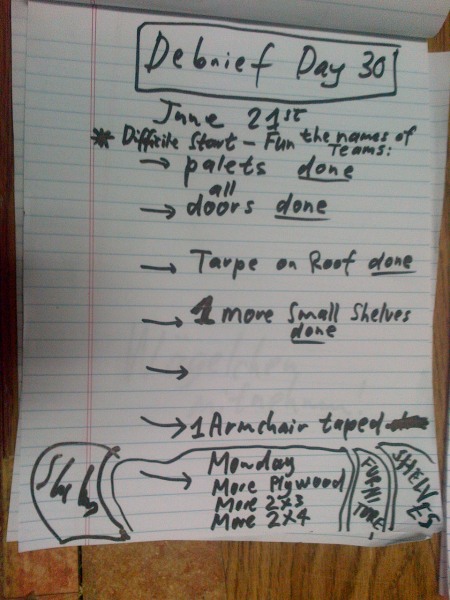 Debrief Day 30
June 21st
* Difficile Start - Fun the names of Teams:
→ palets done
→ all doors done
→ Tarpe on Roof done
→ 1 more Small Shelves
done
→
→ 1 Armchair taped
→ Monday
More Plywood
More 2x3
More 2x4
FURNITURE!
SHELVES